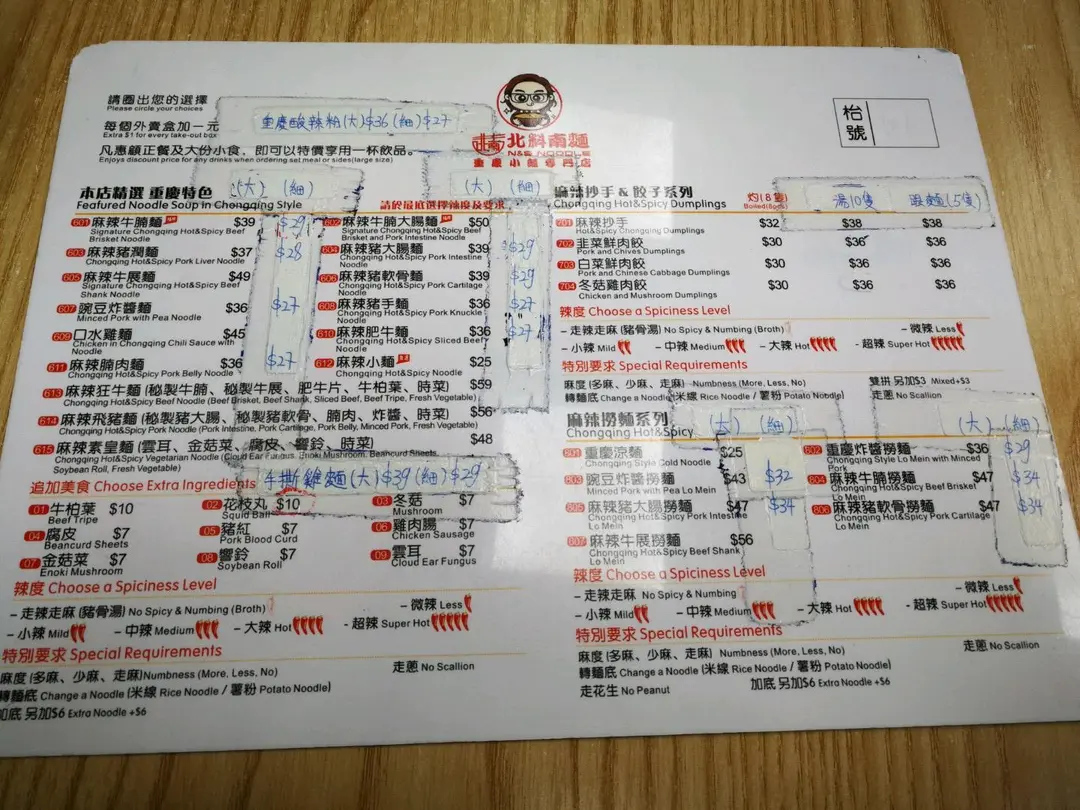 請圈出您的選擇
Please circle your choices
每個外賣盒加一元
Extra $1 for every take-out box
凡惠顧正餐及大份小食，即可以特價享用一杯飲品。
Enjoys discount price for any drinks when ordering set meal or sides(large size)
重慶酸辣粉(大)$36(細)$27
北斜南麵
N&S NOODLE
重慶小麵專門店
枱號
本店精選 重慶特色
(大) (細)
請於最底選擇辣度及要求
(大) (細)
Featured Noodle Soup in Chongqing Style
601 麻辣牛腩麵 $39 $29
Signature Chongqing Hot&Spicy Beef Brisket Noodle
602 麻辣牛腩大腸麵 $50
Signature Chongqing Hot&Spicy Beef Brisket and Pork Intestine Noodle
603 麻辣豬潤麵 $37 $28
Chongqing Hot&Spicy Pork Liver Noodle
604 麻辣豬大腸麵 $39 $29
Chongqing Hot&Spicy Pork Intestine Noodle
605 麻辣牛展麵 $49
Signature Chongqing Hot&Spicy Beef Shank Noodle
606 麻辣豬軟骨麵 $39 $29
Chongqing Hot&Spicy Pork Cartilage Noodle
607 豌豆炸醬麵 $36 $27
Minced Pork with Pea Noodle
608 麻辣豬手麵 $36 $27
Chongqing Hot&Spicy Pork Knuckle Noodle
609 口水雞麵 $45
Chicken in Chongqing Chili Sauce with Noodle
610 麻辣肥牛麵 $36 $27
Chongqing Hot&Spicy Sliced Beef Noodle
611 麻辣腩肉麵 $36 $27
Chongqing Hot&Spicy Pork Belly Noodle
612 麻辣小麵 $25
613 麻辣狂牛麵 (秘製牛腩、秘製牛展、肥牛片、牛柏葉、時菜) $59
Chongqing Hot&Spicy Beef Noodle (Beef Brisket, Beef Shank, Sliced Beef, Beef Tripe, Fresh Vegetable)
614 麻辣飛豬麵 (秘製豬大腸、秘製豬軟骨、腩肉、炸醬、時菜) $56
Chongqing Hot&Spicy Pork Noodle (Pork Intestine, Pork Cartilage, Pork Belly, Minced Pork, Fresh Vegetable)
615 麻辣素皇麵 (雲耳、金菇菜、腐皮、響鈴、時菜) $48
Chongqing Hot&Spicy Vegetarian Noodle (Cloud Ear Fungus, Enoki Mushroom, Beancurd Sheets, Soybean Roll, Fresh Vegetable)
手撕雞麵(大)$39(細)$29
追加美食 Choose Extra Ingredients
01 牛柏葉 $10
Beef Tripe
02 花枝丸 $10
Squid Ball
03 冬菇 $7
Mushroom
04 腐皮 $7
Beancurd Sheets
05 豬紅 $7
Pork Blood Curd
06 雞肉腸 $7
Chicken Sausage
07 金菇菜 $7
Enoki Mushroom
08 響鈴 $7
Soybean Roll
09 雲耳 $7
Cloud Ear Fungus
辣度 Choose a Spiciness Level
- 走辣走麻 (豬骨湯) No Spicy & Numbing (Broth)
- 微辣 Less
- 小辣 Mild
- 中辣 Medium
- 大辣 Hot
- 超辣 Super Hot
特別要求 Special Requirements
麻度 (多麻、少麻、走麻) Numbness (More, Less, No)
走蔥 No Scallion
轉麵底 Change a Noodle (米線 Rice Noodle / 薯粉 Potato Noodle)
加底 另加$6 Extra Noodle +$6
麻辣抄手 & 餃子系列
Chongqing Hot&Spicy Dumplings
灼(8隻)
Boiled(8pcs)
湯10隻
(5隻)
701 麻辣抄手 $32 $38 $38
Hot&Spicy Chongqing Dumplings
702 韭菜鮮肉餃 $30 $36 $36
Pork and Chives Dumplings
703 白菜鮮肉餃 $30 $36 $36
Pork and Chinese Cabbage Dumplings
704 冬菇雞肉餃 $30 $36 $36
Chicken and Mushroom Dumplings
辣度 Choose a Spiciness Level
- 走辣走麻 (豬骨湯) No Spicy & Numbing (Broth)
- 微辣 Less
- 小辣 Mild
- 中辣 Medium
- 大辣 Hot
- 超辣 Super Hot
特別要求 Special Requirements
麻度 (多麻、少麻、走麻) Numbness (More, Less, No)
雙拼 另加$3 Mixed+$3
轉麵底 Change a Noodle (米線 Rice Noodle / 薯粉 Potato Noodle)
走蔥 No Scallion
麻辣撈麵系列
(大) (細)
(大) (細)
Chongqing Hot&Spicy
801 重慶涼麵 $25
Chongqing Style Cold Noodle
802 重慶炸醬撈麵 $36 $29
Chongqing Style Lo Mein with Minced Pork
803 豌豆炸醬撈麵 $43 $32
Minced Pork with Pea Lo Mein
804 麻辣牛腩撈麵 $47 $34
Chongqing Hot&Spicy Beef Brisket Lo Mein
805 麻辣豬大腸撈麵 $47 $34
Chongqing Hot&Spicy Pork Intestine Lo Mein
806 麻辣豬軟骨撈麵 $47 $34
Chongqing Hot&Spicy Pork Cartilage Lo Mein
807 麻辣牛展撈麵 $56
Chongqing Hot&Spicy Beef Shank Lo Mein
辣度 Choose a Spiciness Level
- 走辣走麻 No Spicy & Numbing
- 微辣 Less
- 小辣 Mild
- 中辣 Medium
- 大辣 Hot
- 超辣 Super Hot
特別要求 Special Requirements
麻度 (多麻、少麻、走麻) Numbness (More, Less, No)
走蔥 No Scallion
轉麵底 Change a Noodle (米線 Rice Noodle / 薯粉 Potato Noodle)
走花生 No Peanut
加底 另加$6 Extra Noodle +$6